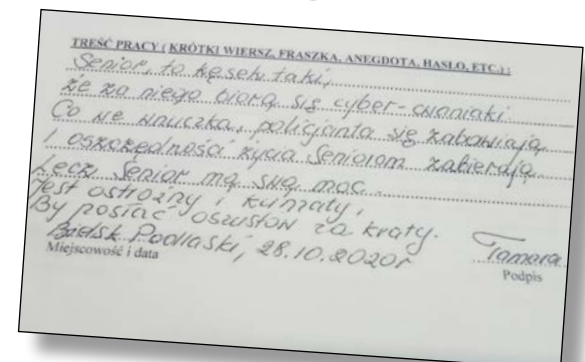 TREŚĆ PRACY ( KRÓTKI WIERSZ, FRASZKA, ANEGDOTA, HASŁO, ETC.) :
Senior, to kęsek taki,
że za niego biorą się cyber-cwaniaki.
Co we wnuczka, policjanta się zabawiają,
I oszczędności życia Seniorom zabierają,
Lecz Senior ma swą moc.
Jest ostrożny i kumaty,
By posłać oszustów za kraty.
Bielsk Podlaski, 28.10.2020r
Miejscowość i data
Tamara
Podpis